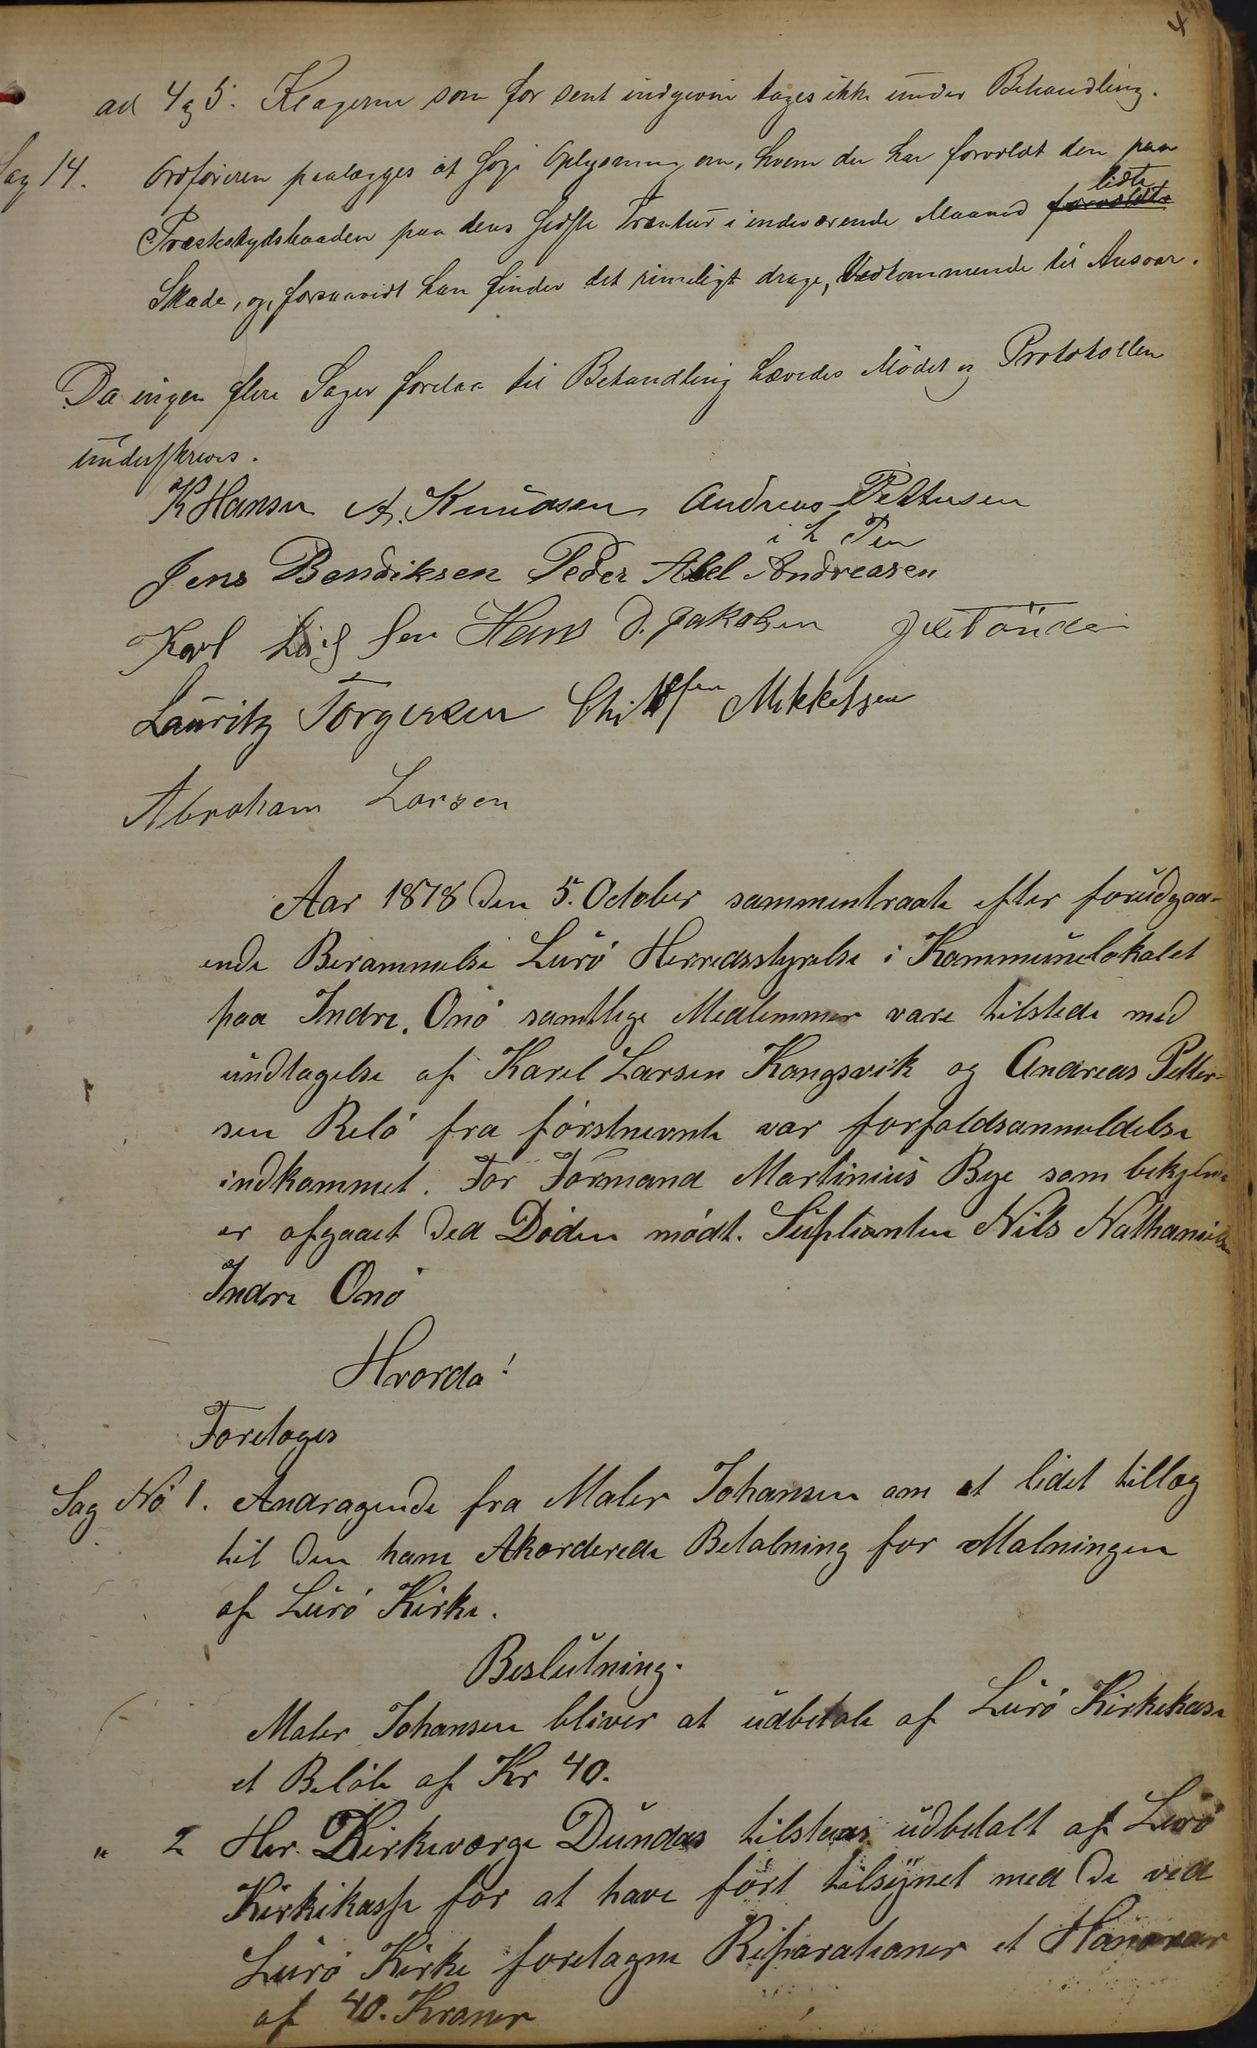 4
ad 4 og 5. Klagerne som for sent indgivne tages ikke under Behandling.
Sag 14. Ordføreren paalægges at søge Oplysning om, hvem der har forvoldt den paa
lidte
Præsteskydsbaaden paa dens sidste Tur i indeværende Maaned forvoldte
Skade, og, forsaavidt han finder det rimeligt drage, Vedkommende til Ansvar.
Da ingen flere Sager forelaa til Behandling hævedes Mødet og Protokollen
underskreves.
K Hansen A. Knudsen Andreas Pettersen
i h Pen
Jens Bendiksen Peder Abel Andreasen
Karl Hans D. Jakobsen
Lauritz Torgersen Mikkelsen
Abraham Larsen
Aar 1878 den 5. October sammentraate efter forudgaa-
ende Berammelse Lurö Herredsstyrelse i Kommunelokalet
paa Indre Onö samtlige Medlemmer vare tilstede med
undtagelse af Karel Larsen Kongsvik og Andreas Petter-
sen Relö fra förstnevnte var forfaldsanmeldelse
indkommet. For Formand Martinius Bye som
er afgaaet ved Döden mödt. Suplianten Nils Nathanielsen
Indre Onö
Hvorda!
Foretoges
Sag No 1. Andragende fra Maler Johansen om et lidet tillæg
til den ham Akorderede Betalning for Malningen
af Lurö Kirke.
Beslutning.
Maler Johansen bliver at udbetale af Lurö Kirkekasse
et Belöb af Kr 40.
" 2 Hr. Kirkeværge Dundas tilstaaes udbetalt af Lurö
Kirkekasse for at have fört tilsynet med de ved
Lurö Kirke foretagne Reparationer et Honorar
af 40. Kroner